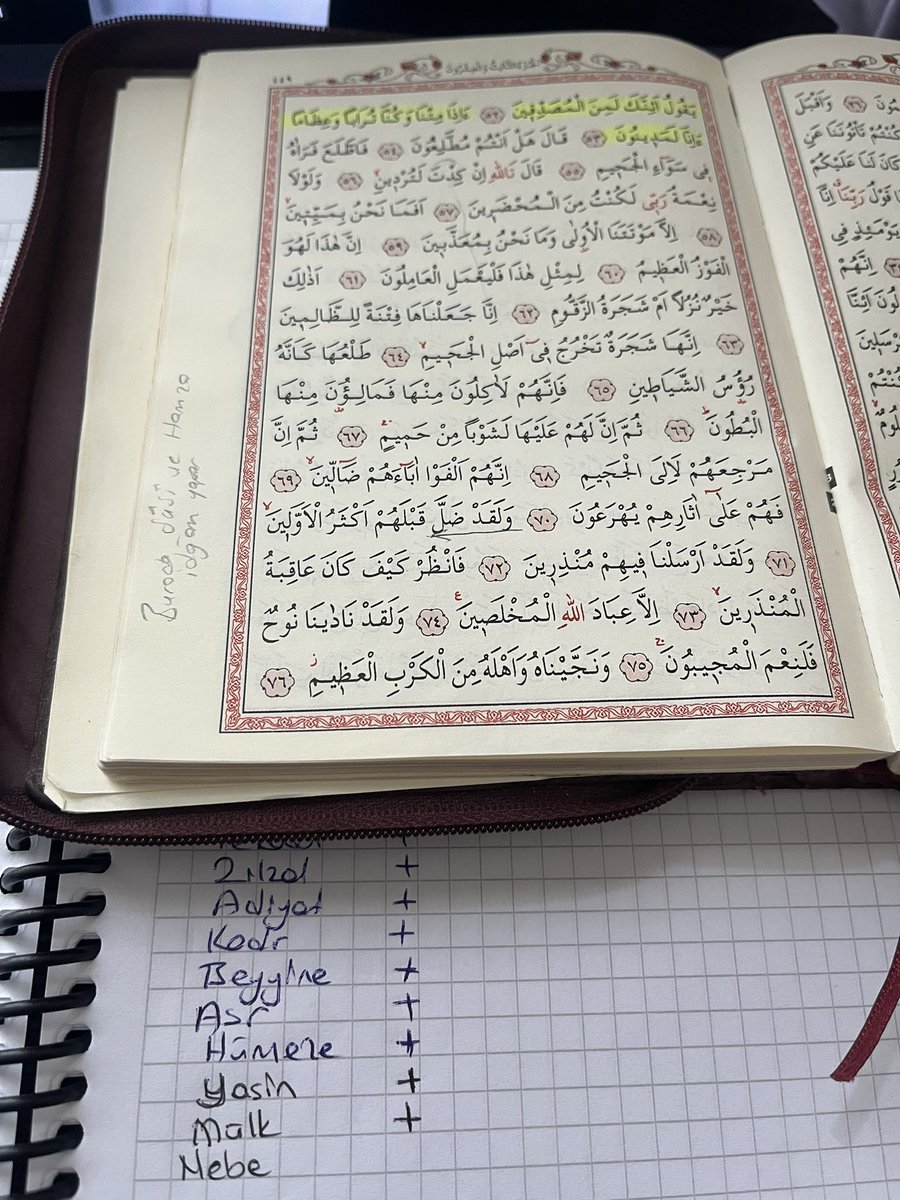 الجزء الثالث والعشرون
٤٤٩
يَقُولُ اَئِنَّكَ لَمِنَ الْمُصَدِّقٖينَ ﴿٥٢﴾ ءَاِذَا مِتْنَا وَكُنَّا تُرَاباً وَعِظَاماً
ءَاِنَّا لَمَدٖينُونَ ﴿٥٣﴾ قَالَ هَلْ اَنْتُمْ مُطَّلِعُونَ ﴿٥٤﴾ فَاطَّلَعَ فَرَاٰهُ
فٖى سَوَٓاءِ الْجَحٖيمِ ﴿٥٥﴾ قَالَ تَاللّٰهِ اِنْ كِدْتَ لَتُرْدٖينِ ﴿٥٦﴾ وَلَوْلَا
نِعْمَةُ رَبّٖى لَكُنْتُ مِنَ الْمُحْضَرٖينَ ﴿٥٧﴾ اَفَمَا نَحْنُ بِمَيِّتٖينَ
﴿٥٨﴾ اِلَّا مَوْتَتَنَا الْاُولٰى وَمَا نَحْنُ بِمُعَذَّبٖينَ ﴿٥٩﴾ اِنَّ هٰذَا لَهُوَ
الْفَوْزُ الْعَظٖيمُ ﴿٦٠﴾ لِمِثْلِ هٰذَا فَلْيَعْمَلِ الْعَامِلُونَ ﴿٦١﴾ اَذٰلِكَ
خَيْرٌ نُزُلاً اَمْ شَجَرَةُ الزَّقُّومِ ﴿٦٢﴾ اِنَّا جَعَلْنَاهَا فِتْنَةً لِلظَّالِمٖينَ
﴿٦٣﴾ اِنَّهَا شَجَرَةٌ تَخْرُجُ فٖٓى اَصْلِ الْجَحٖيمِ ﴿٦٤﴾ طَلْعُهَا كَاَنَّهُ
رُؤُسُ الشَّيَاطٖينِ ﴿٦٥﴾ فَاِنَّهُمْ لَاٰكِلُونَ مِنْهَا فَمَالِؤُنَ مِنْهَا
الْبُطُونَ ﴿٦٦﴾ ثُمَّ اِنَّ لَهُمْ عَلَيْهَا لَشَوْباً مِنْ حَمٖيمٍ ﴿٦٧﴾ ثُمَّ اِنَّ
مَرْجِعَهُمْ لَاِلَى الْجَحٖيمِ ﴿٦٨﴾ اِنَّهُمْ اَلْفَوْا اٰبَٓاءَهُمْ ضَٓالّٖينَ ﴿٦٩﴾
فَهُمْ عَلٰٓى اٰثَارِهِمْ يُهْرَعُونَ ﴿٧٠﴾ وَلَقَدْ ضَلَّ قَبْلَهُمْ اَكْثَرُ الْاَوَّلٖينَ
﴿٧١﴾ وَلَقَدْ اَرْسَلْنَا فٖيهِمْ مُنْذِرٖينَ ﴿٧٢﴾ فَانْظُرْ كَيْفَ كَانَ عَاقِبَةُ
الْمُنْذَرٖينَ ﴿٧٣﴾ اِلَّا عِبَادَ اللّٰهِ الْمُخْلَصٖينَ ﴿٧٤﴾ وَلَقَدْ نَادٰينَا نُوحٌ
فَلَنِعْمَ الْمُجٖيبُونَ ﴿٧٥﴾ وَنَجَّيْنَاهُ وَاَهْلَهُ مِنَ الْكَرْبِ الْعَظٖيمِ ﴿٧٦﴾
Burada Sûsî ve Hamza
idğam yapar
Zilzal +
Adiyat +
Kadr +
Beyyine +
Asr +
Hümeze +
Yasin +
Mülk +
Nebe